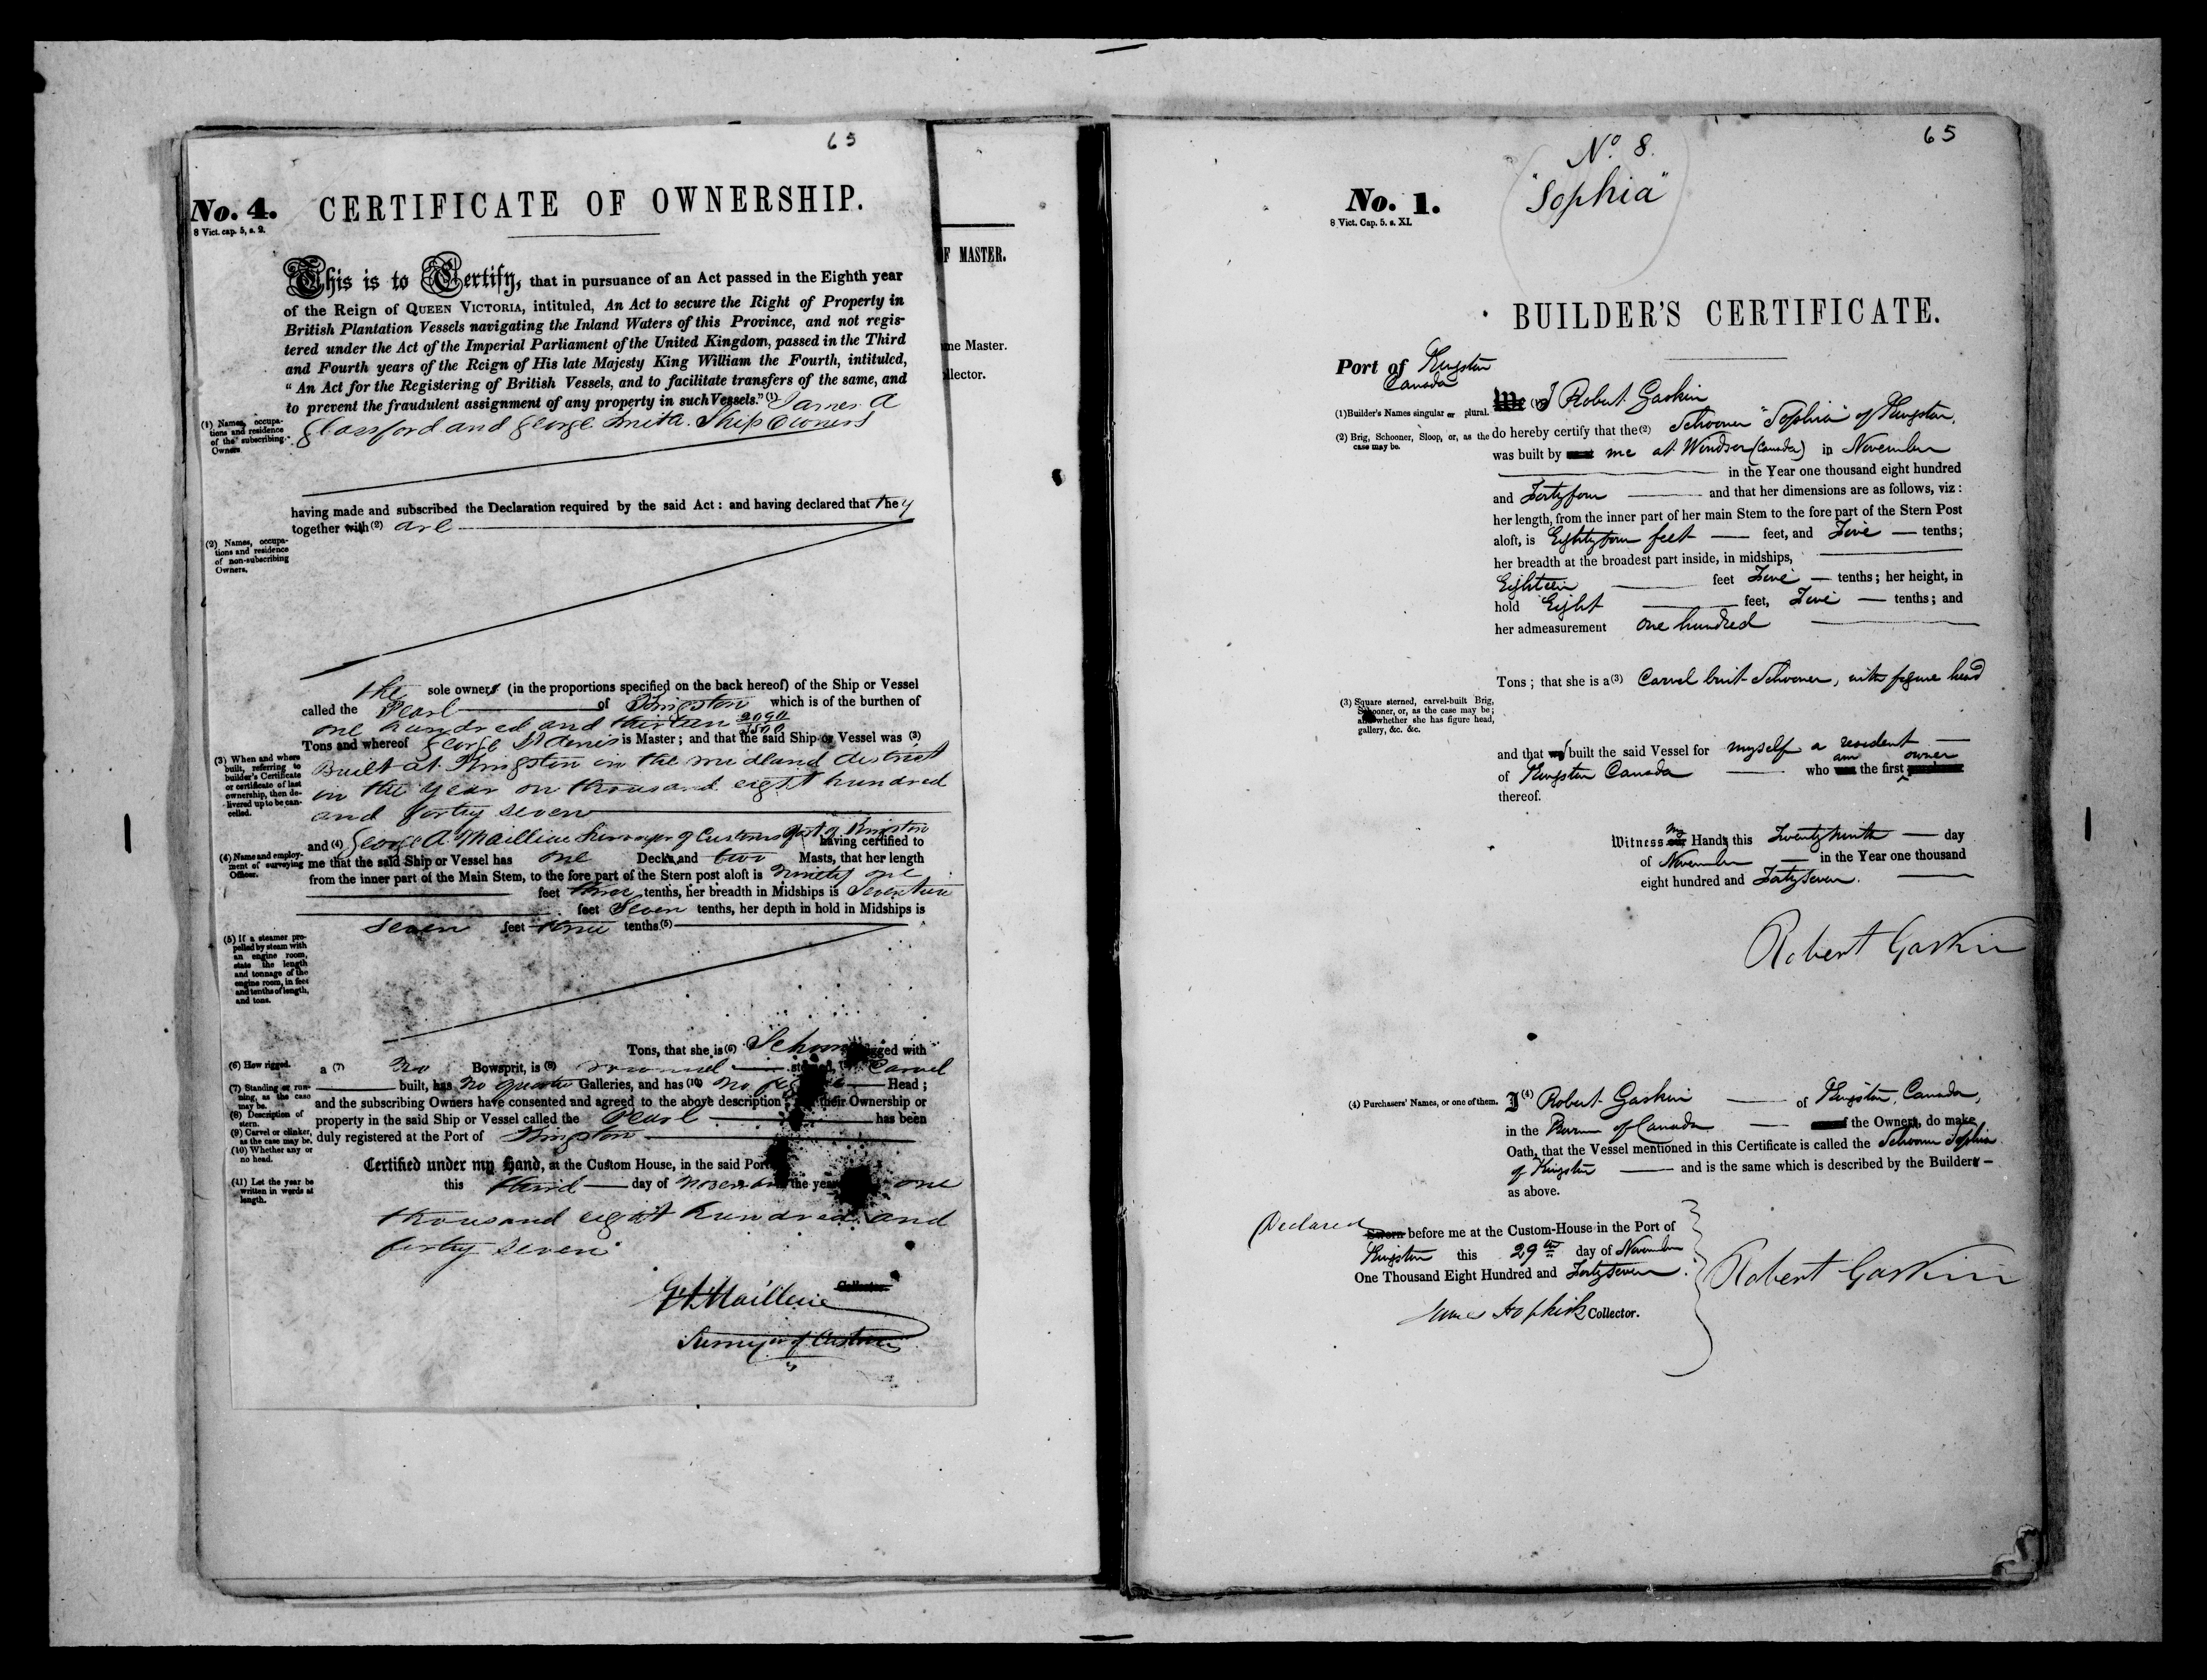 65
No. 4. CERTIFICATE OF OWNERSHIP.
8 Vict. cap. 5, s. 2.
This is to Certify, that in pursuance of an Act passed in the Eighth year
of the Reign of QUEEN VICTORIA, intituled, An Act to secure the Right of Property in
British Plantation Vessels navigating the Inland Waters of this Province, and not regis-
tered under the Act of the Imperial Parliament of the United Kingdom, passed in the Third
and Fourth years of the Reign of His late Majesty King William the Fourth, intituled,
" An Act for the Registering of British Vessels, and to facilitate transfers of the same, and
to prevent the fraudulent assignment of any property in such Vessels." (1) James A
(1) Names, occupa-
tions and residence
of the subscribing
Owners
Glassford and George Smith. Ship Owners
having made and subscribed the Declaration required by the said Act : and having declared that they
together with (2) are
(2) Names, occupa-
tions and residence
of non-subscribing
Owners.
the sole owners (in the proportions specified on the back hereof) of the Ship or Vessel
called the Pearl of Kingston which is of the burthen of
one hundred and thirteen 2090/3500
Tons and whereof George St Denis is Master ; and that the said Ship or Vessel was (3)
(3) When and where
built, referring to
builder's Certificate
or certificate of last
ownership, then de-
livered up to be can-
celled.
Built at Kingston in the midland district
in the year on thousand eight hundred
and forty seven
and (4) George A. Maillieue Surveyor of Customs Port of Kingston having certified to
(4) Name and employ-
ment of surveying
Officer.
me that the said Ship or Vessel has one Decks, and two Masts, that her length
from the inner part of the Main Stem, to the fore part of the Stern post aloft is ninety one
feet three tenths, her breadth in Midships is Seventeen
feet Seven tenths, her depth in hold in Midships is
seven feet three tenths (5)
(5) If a steamer pro-
pelled by steam with
an engine room,
state the length
and tonnage of the
engine room, in feet
and tenths of length,
and tons.
Tons, that she is (6) Schooner rigged with
(6) How rigged.
a (7) No Bowsprit, is (8) round sterned, Carvel
(7) Standing or run-
ning, as the case
may be.
built, has no quarter Galleries, and has (10) no figure Head ;
and the subscribing Owners have consented and agreed to the above description their Ownership or
(8) Description of
stern.
property in the said Ship or Vessel called the Pearl has been
(9) Carvel or clinker,
as the case may be.
duly registered at the Port of Kingston
(10) Whether any or
no head.
Certified under my Hand, at the Custom House, in the said Port
(11) Let the year be
written in words at
length.
this third day of November the year one
thousand eight hundred and
forty seven
Collector.
G A Maillieue
Surveyor of Customs
F MASTER.
me Master.
llector.
65
No. 8.
"Sophia"
No. 1.
8 Vict. Cap. 5. s. XI.
BUILDER'S CERTIFICATE.
Port of Kingston
Canada
We (1) I Robert Gaskin
(1) Builder's Names singular or plural.
do hereby certify that the (2) Schooner "Sophia" of Kingston,
(2) Brig, Schooner, Sloop, or, as the
case may be.
was built by me at Windsor (Canada) in November
in the Year one thousand eight hundred
and Fortyfour and that her dimensions are as follows, viz :
her length, from the inner part of her main Stem to the fore part of the Stern Post
aloft, is Eightyfour feet feet, and Five tenths;
her breadth at the broadest part inside, in midships,
Eighteen feet Five tenths; her height, in
hold Eight feet, Five tenths; and
her admeasurement one hundred
Tons ; that she is a (3) Carvel built Schooner, with figure head
(3) Square sterned, carvel-built Brig,
Schooner, or, as the case may be ;
and whether she has figure head,
gallery, &c. &c.
and that I built the said Vessel for myself a resident
of Kingston Canada who am the first owner
thereof.
Witness my Hands this Twenty ninth day
of November in the Year one thousand
eight hundred and Forty Seven.
Robert Gaskin
(4) Purchasers' Names, or one of them.
I (4) Robert Gaskin of Kingston, Canada,
in the Province of Canada the Owners, do make
Oath, that the Vessel mentioned in this Certificate is called the Schooner Sophia
of Kingston and is the same which is described by the Builders
as above.
Declared
Sworn before me at the Custom-House in the Port of
Kingston this 29th day of November
One Thousand Eight Hundred and Forty Seven.
Robert Gaskin
James Hopkirk Collector.